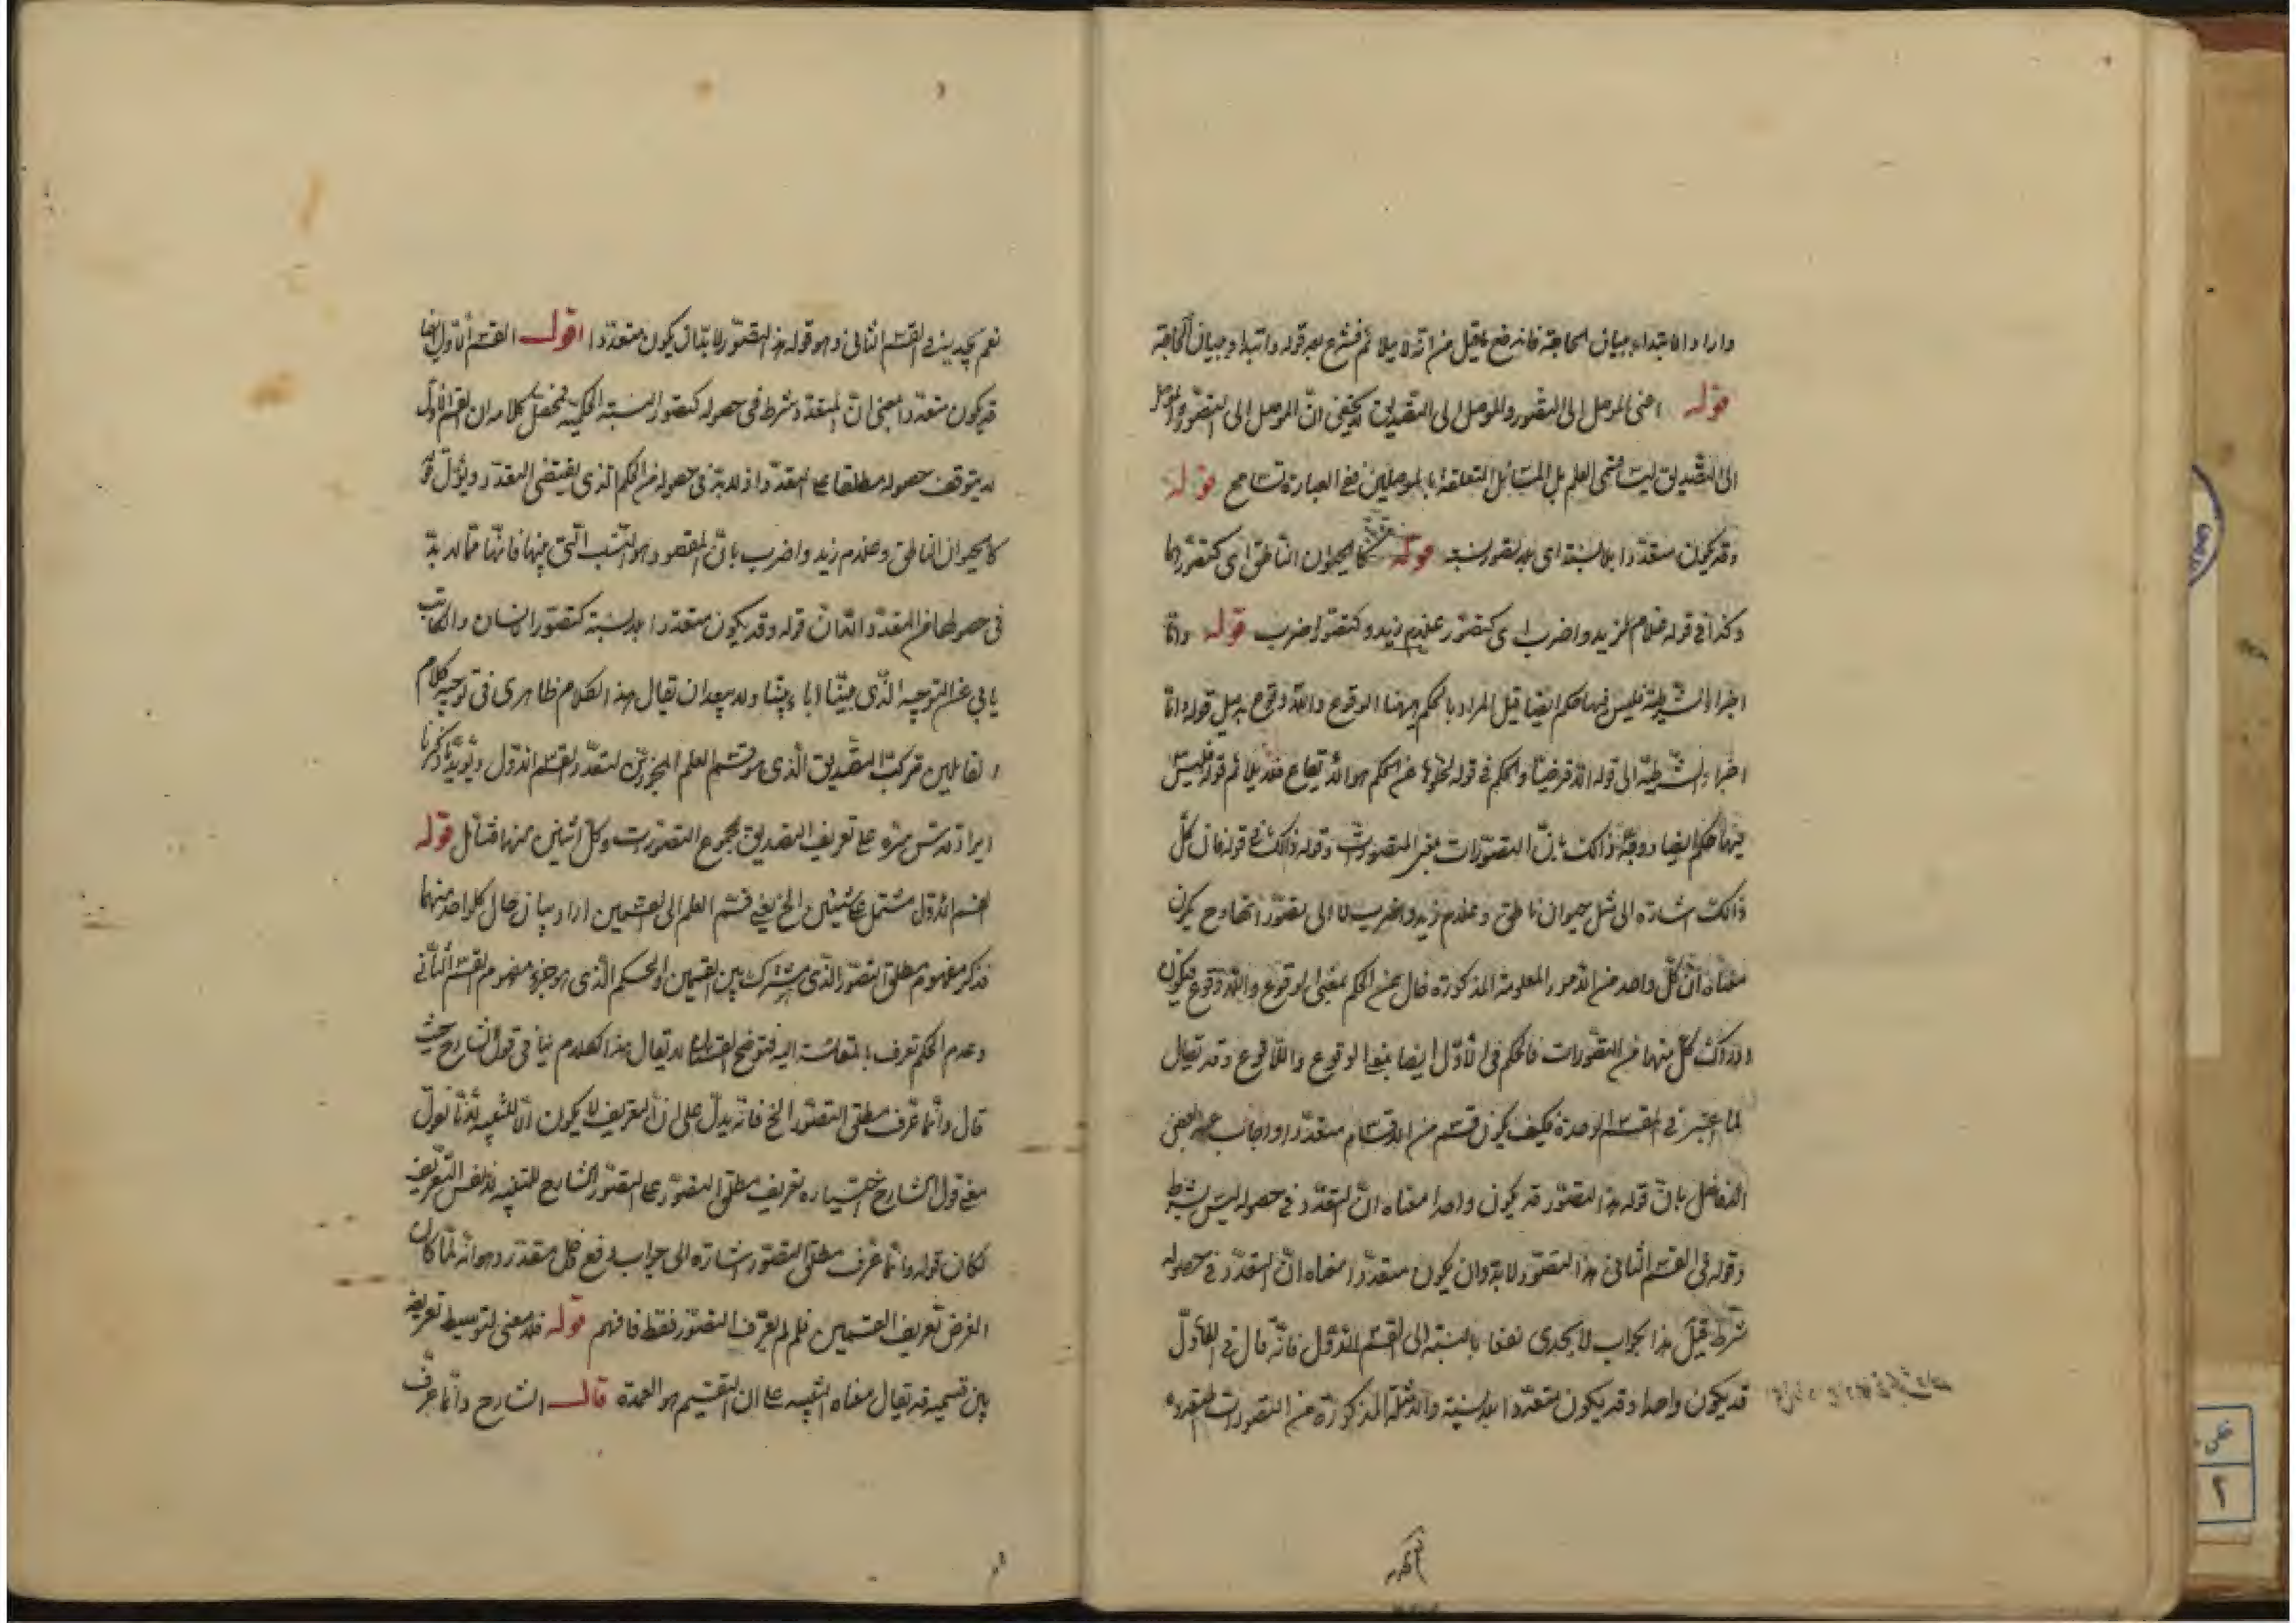 واراد الابتداء ببيان الحاجة فانه رفع ما قيل من انه لا يلائم فشرع بعد قوله وابتداء ببيان الحاجة
قوله اعنى الموصل الى التصور والموصل الى التصديق لا يخفى ان الموصل الى التصور والموصل
الى التصديق ليسا من العلم بل المسائل المتعلقة بالموصلين ففى العبارة تسامح قوله
وقد يكون متعددا بلا نسبة اى بلا تصور نسبة قوله كالحيوان الناطق اى كتصورهما
وكذا فى قوله غلام لزيد واضرب اى كتصور غلام زيد وكتصور اضرب قوله واما
اجزاء الشرطية فليس فيها حكم ايضا قيل المراد بالحكم ههنا الوقوع واللاوقوع بدليل قوله واما
اجزاء الشرطية الى قوله الا فرضيا والحكم فى قوله لخلوها عن الحكم هو الايقاع فلا يلائم قوله فليس
فيها حكم ايضا ووجه ذالك بان التصورات بمعنى المتصورات وقوله ذالك فى قوله فان كل
ذالك اشارة الى مثل حيوان ناطق وغلام زيد واضرب لا الى تصوراتها وح يكون
معناه ان كل واحد من الامور المعلومة المذكورة خال عن الحكم بمعنى الوقوع واللاوقوع فيكون
ادراك كل منها من التصورات فالحكم فى الأول ايضا بمعنى الوقوع واللاوقوع وقد يقال
لما اعتبر فى المقسم الوحدة فكيف يكون قسم من الاقسام متعددا واجاب عنه بعض
الافاضل بان قوله هذا التصور قد يكون واحدا معناه ان التعدد فى حصوله ليس بشرط
وقوله فى القسم الثانى هذا التصور لا بد وان يكون متعددا معناه ان التعدد فى حصوله
شرط قيل هذا الجواب لا يجدى نفعا بالنسبة الى القسم الاول فانه قال فى الأول
قد يكون واحدا وقد يكون متعددا بلا نسبة والامثلة المذكورة من التصورات المتعددة
نعم يجدى فى القسم الثانى وهو قوله هذا التصور لا بد ان يكون متعددا اقول القسم الأول ايضا
قد يكون متعددا بمعنى ان التعدد شرط فى حصوله كتصور النسبة الحكمية فمحصل كلامه ان القسم الأول
لا يتوقف حصوله مطلقا على التعدد اذ لا بد فى حصوله من الحكم الذى يقتضى التعدد ويؤل
كالحيوان الناطق وغلام زيد واضرب بان المقصود هو النسب التى فيها فانها مما لا بد
فى حصولها من التعدد الا ان قوله وقد يكون متعددا بلا نسبة كتصور الانسان والكاتب
يابى عن التوجيه الذى بينا اباء بينا ولا يبعد ان يقال هذا الكلام ظاهرى فى توجيه كلام
القائلين بتركب التصديق الذى هو قسم العلم المجوزين لتعدد القسم الاول ويؤيد ما ذكرنا
ايراد قدس سره على تعريف التصديق بمجموع التصورات وكل اثنين منها فتأمل قوله
القسم الاول مشتمل على شيئين الخ يعنى قسم العلم الى القسمين اراد بيان حال كل واحد منهما
فذكر مفهوم مطلق التصور الذى مشترك بين القسمين والحكم الذى هو جزء مفهوم القسم الثانى
وعدم الحكم تعرف بالمقايسة اليه فتوضح القسمان لا يقال هذا الكلام ينافى قول الشارح حيث
قال وانما عرف مطلق التصور الخ فانه يدل على ان التعريف لا يكون الا للتنبيه لأنا نقول
معنى قول الشارح اختياره تعريف مطلق التصور على التصور الشارح للتنبيه لا نفس التعريف
فكان قوله وانما عرف مطلق التصور اشارة الى جواب دفع دخل مقدر وهو انه لما كان
الغرض تعريف القسمين فلم لم يعرف التصور فقط فافهم قوله فلا معنى لتوسيط تعريفه
بين قسميه قد يقال معناه التنبيه على ان التقسيم هو العمدة قال الشارح وانما عرف